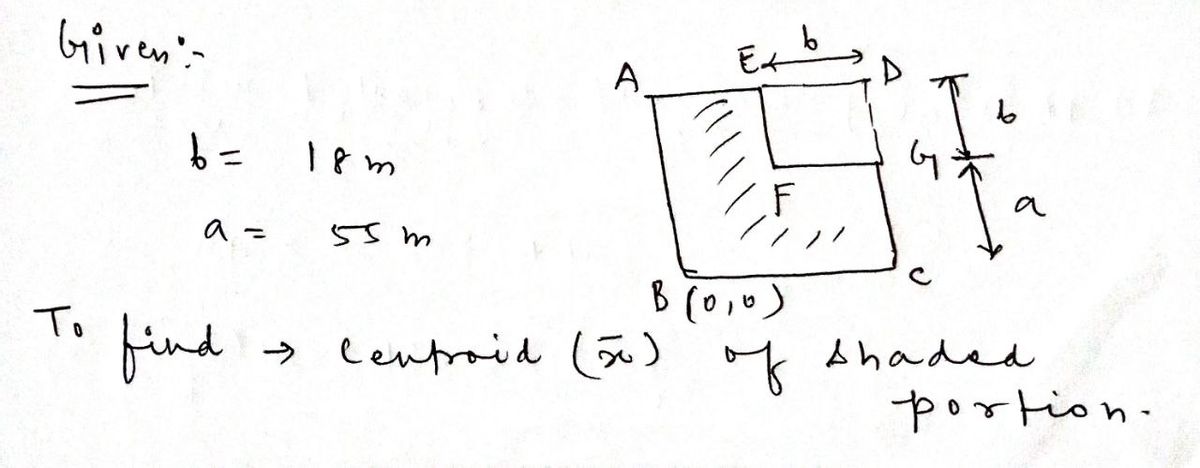 Given:-
b = 18 m
a = 55 m
A E b D
b
G
F
a
B (0,0) C
To find → centroid (x̄) of shaded
portion.